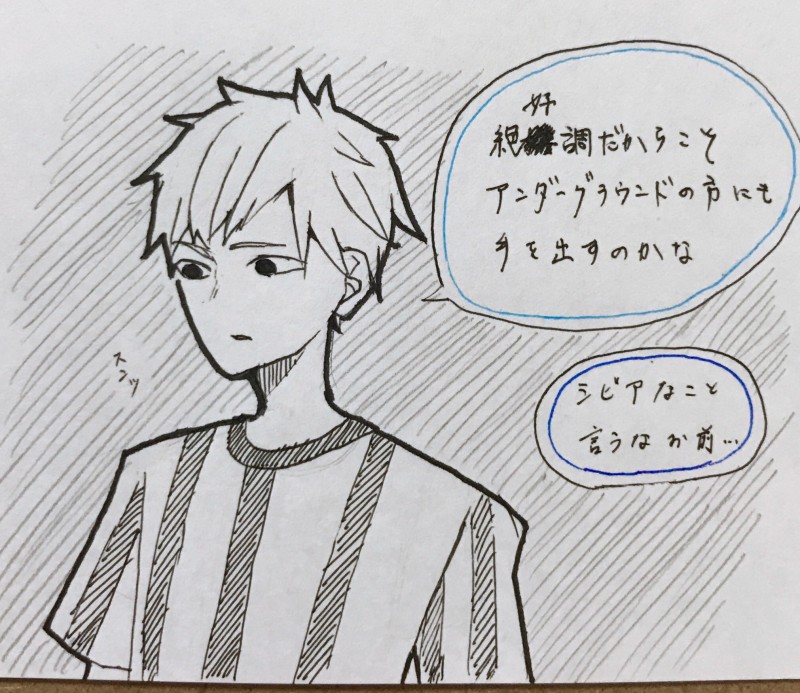 絶好調だからこそ
アンダーグラウンドの方にも
手を出すのかな
シビアなこと
言うなお前…
スンッ